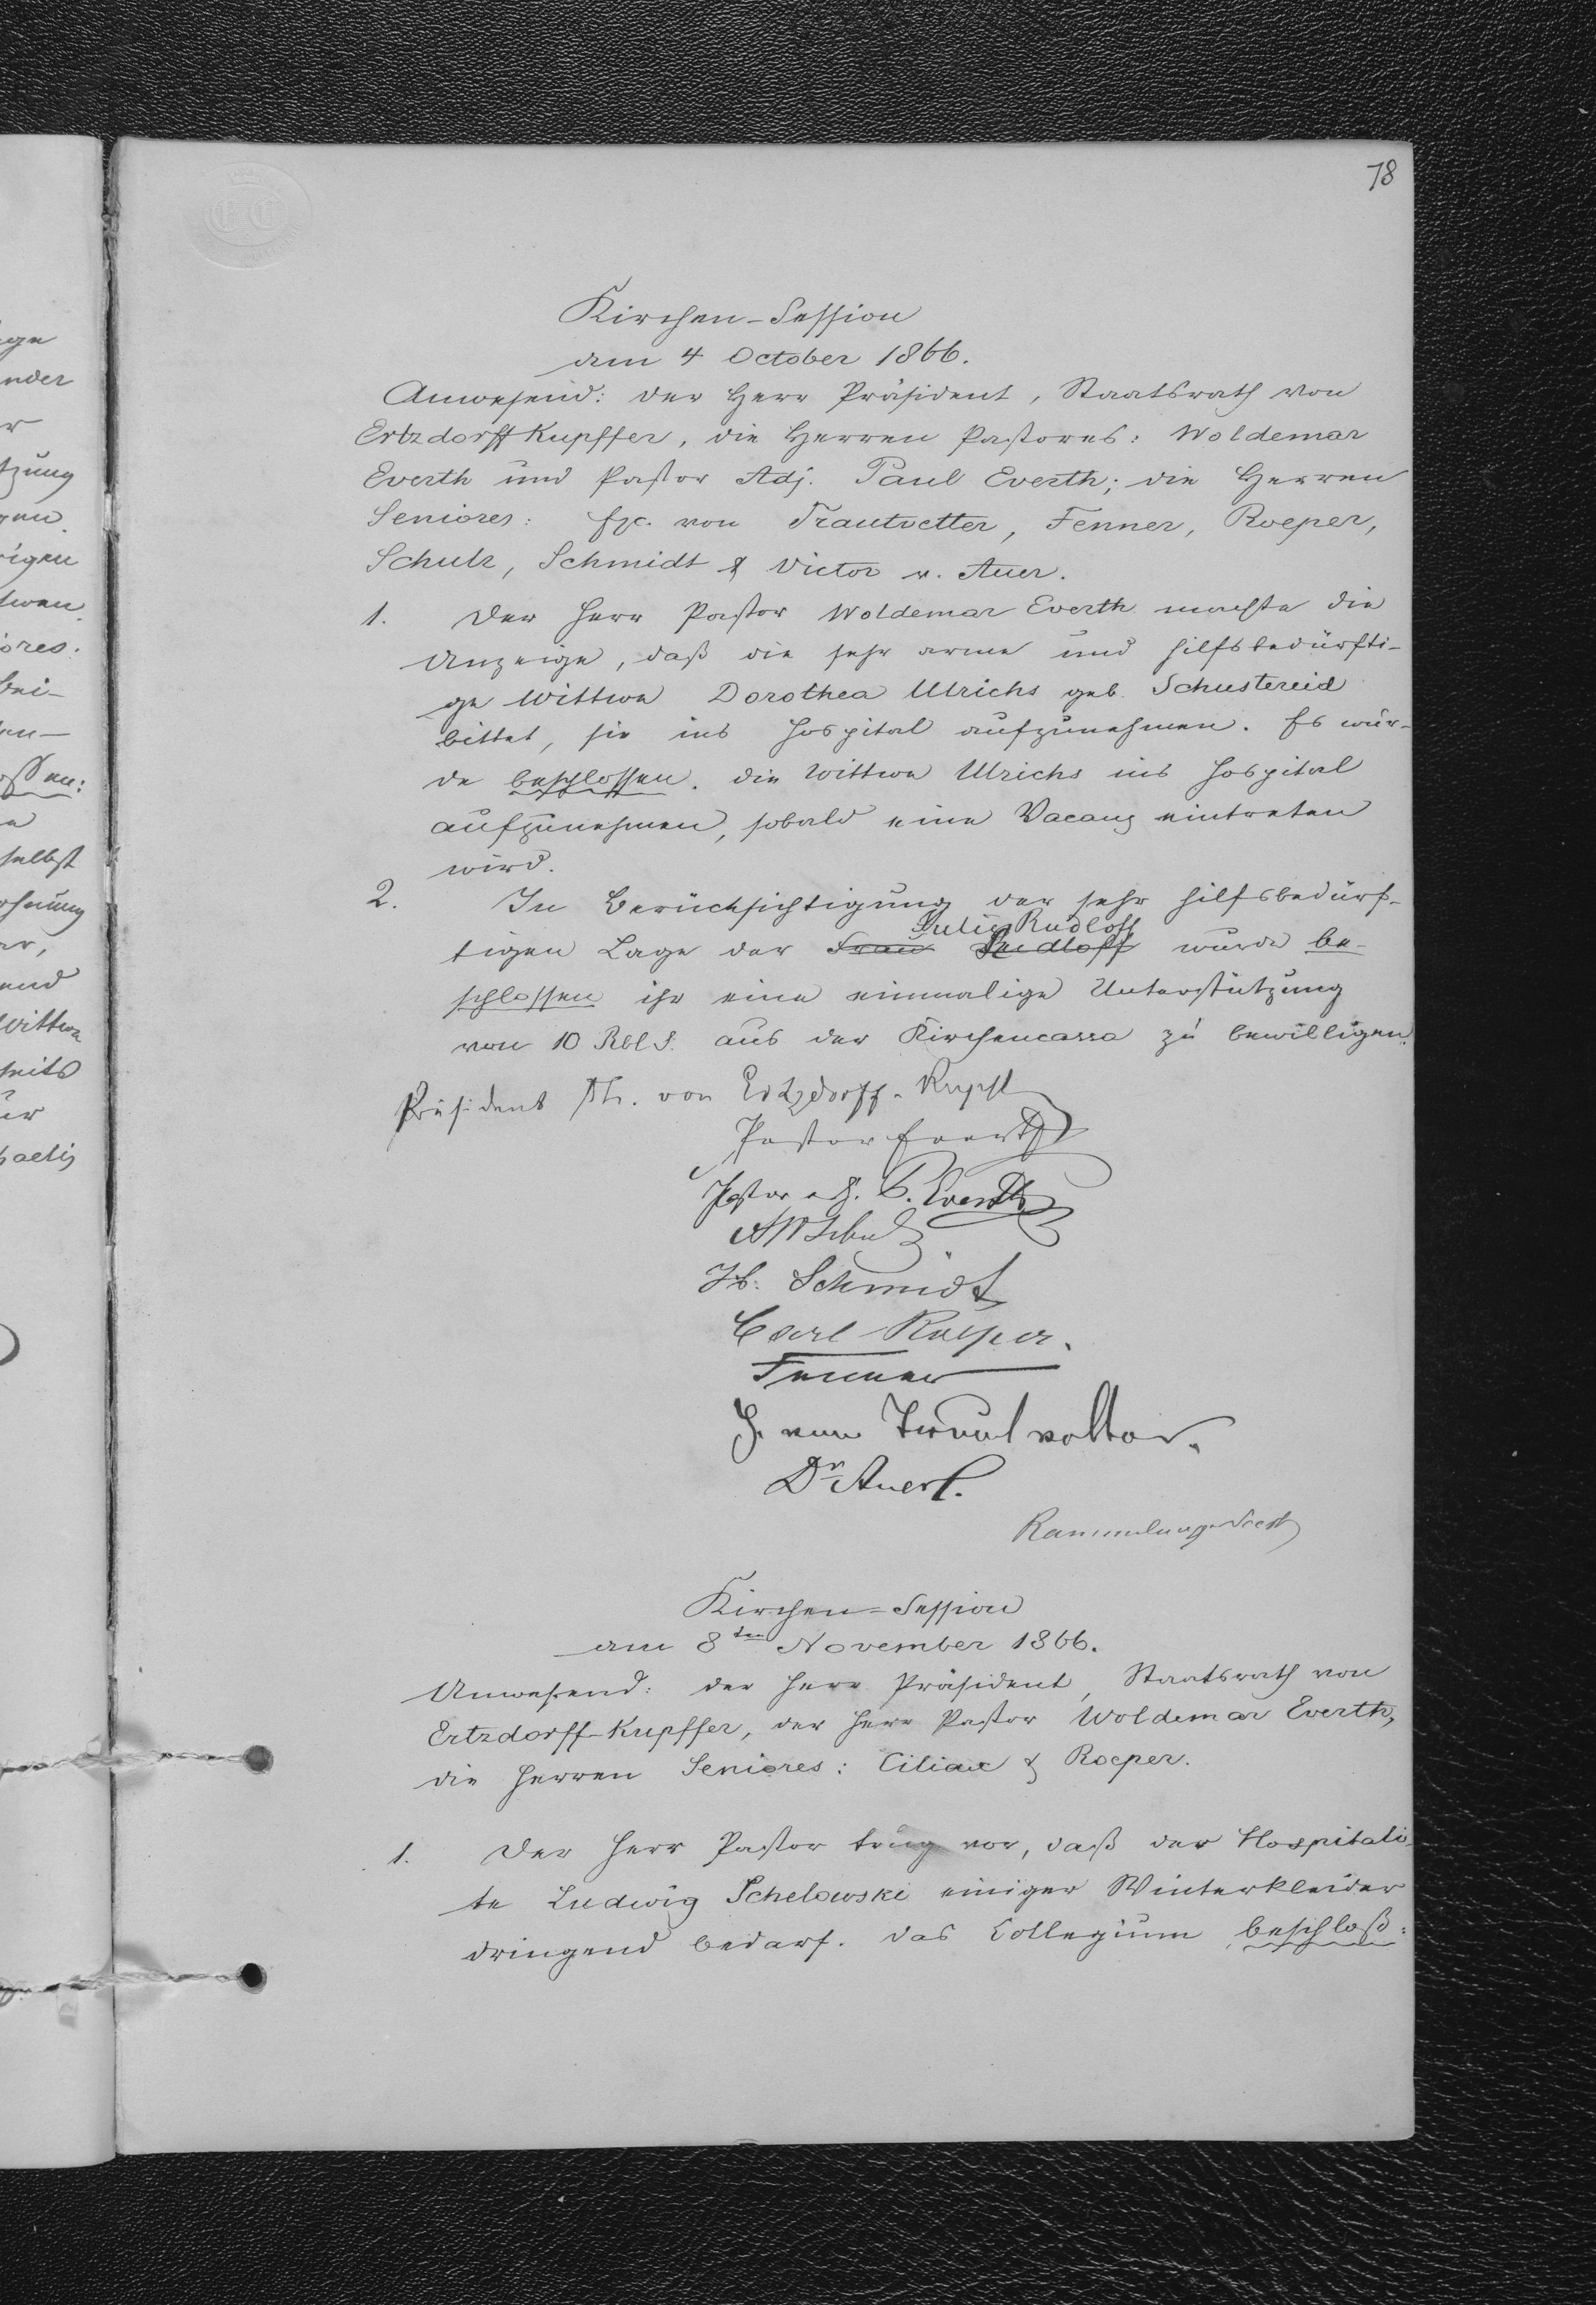 78
Kirchen-Session
am 4 October 1866.
Anwesend: der Herr Präsident, Staatsrath von
Ertzdorff Kupffer, die Herren Pastores: Woldemar
Everth und Pastor Adj. Paul Everth; die Herren
Seniores: Exc. von Trautvetter, Fenner, Roeper,
Schulz, Schmidt & Victor v. Auer.
1. Der Herr Pastor Woldemar Everth machte die
Anzeige, daß die sehr arme und hilfsbedürfti-
ge Wittwe Dorothea Ulrichs geb. Schustereid
bittet, sie ins Hospital aufzunehmen. Es wur-
de beschlossen. die Wittwe Ulrichs ins Hospital
aufzunehmen, sobald eine Vacanz eintreten
wird.
2. In Berücksichtigung der sehr hilfsbedürf-
Julie Rudloff
tigen Lage der Frau Rudloff wurde be-
schlossen ihr eine einmalige Unterstützung
von 10 Rbl S. aus der Kirchencassa zu bewilligen.
Präsident Th. von Ertzdorff-Kupff
Pastor Everth
Pastor adj. P. Everth
Schulz
Schmidt
Carl Roeper.
Fenner
von Trautvetter.
Dr Auer.
Kirchen-Session
am 8ten November 1866.
Anwesend: der Herr Präsident, Staatsrath von
Ertzdorff-Kupffer, der Herr Pastor Woldemar Everth,
die Herren Seniores: Ciliax & Roeper.
1. Der Herr Pastor trug vor, daß der Hospitali-
te Ludwig Schelowski einiger Winterkleider
dringend bedarf. Das Collegium beschloß: